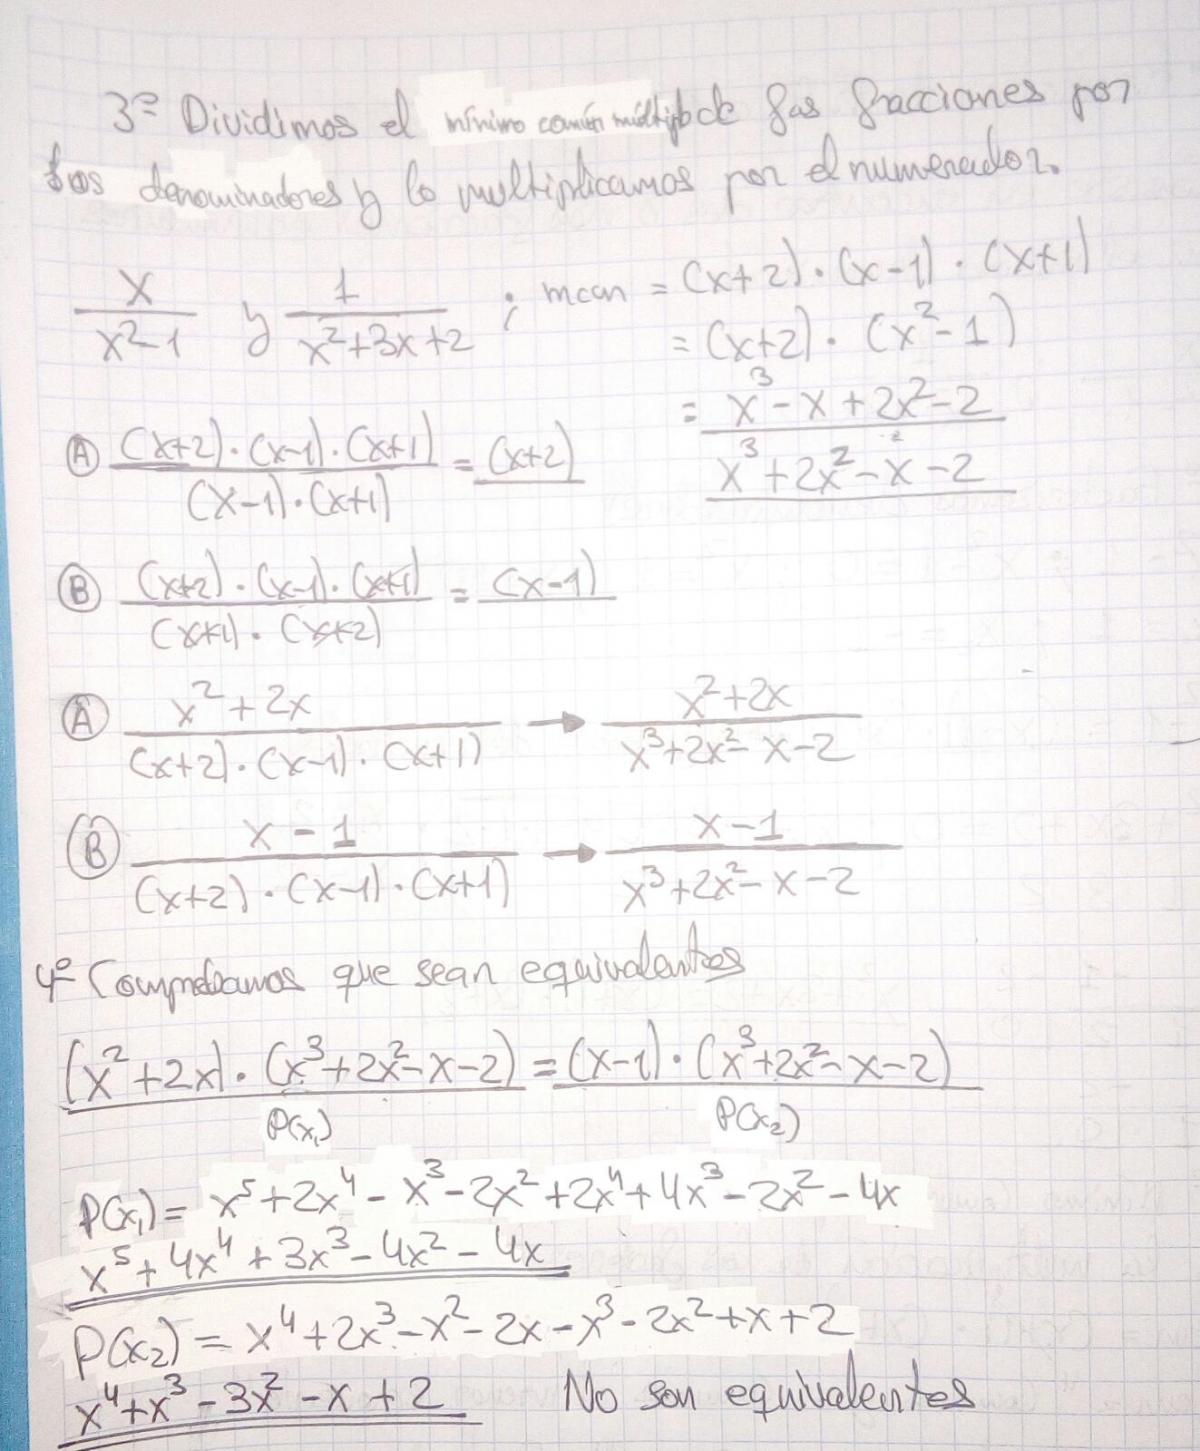 3º Dividimos el mínimo común múltiplo de las fracciones por
los denominadores y lo multiplicamos por el numerador.
x/(x²-1) y 1/(x²+3x+2) ; mcm = (x+2)·(x-1)·(x+1)
= (x+2)·(x²-1)
= x³-x+2x²-2
x³+2x²-x-2
Ⓐ ((x+2)·(x-1)·(x+1))/((x-1)·(x+1)) = (x+2)
Ⓑ ((x+2)·(x-1)·(x+1))/((x+1)·(x+2)) = (x-1)
Ⓐ (x²+2x)/((x+2)·(x-1)·(x+1)) → (x²+2x)/(x³+2x²-x-2)
Ⓑ (x-1)/((x+2)·(x-1)·(x+1)) → (x-1)/(x³+2x²-x-2)
4º Comprobamos que sean equivalentes
(x²+2x)·(x³+2x²-x-2) = (x-1)·(x³+2x²-x-2)
P(x₁) P(x₂)
P(x₁) = x⁵+2x⁴-x³-2x²+2x⁴+4x³-2x²-4x
x⁵+4x⁴+3x³-4x²-4x
P(x₂) = x⁴+2x³-x²-2x-x³-2x²+x+2
x⁴+x³-3x²-x+2 No son equivalentes